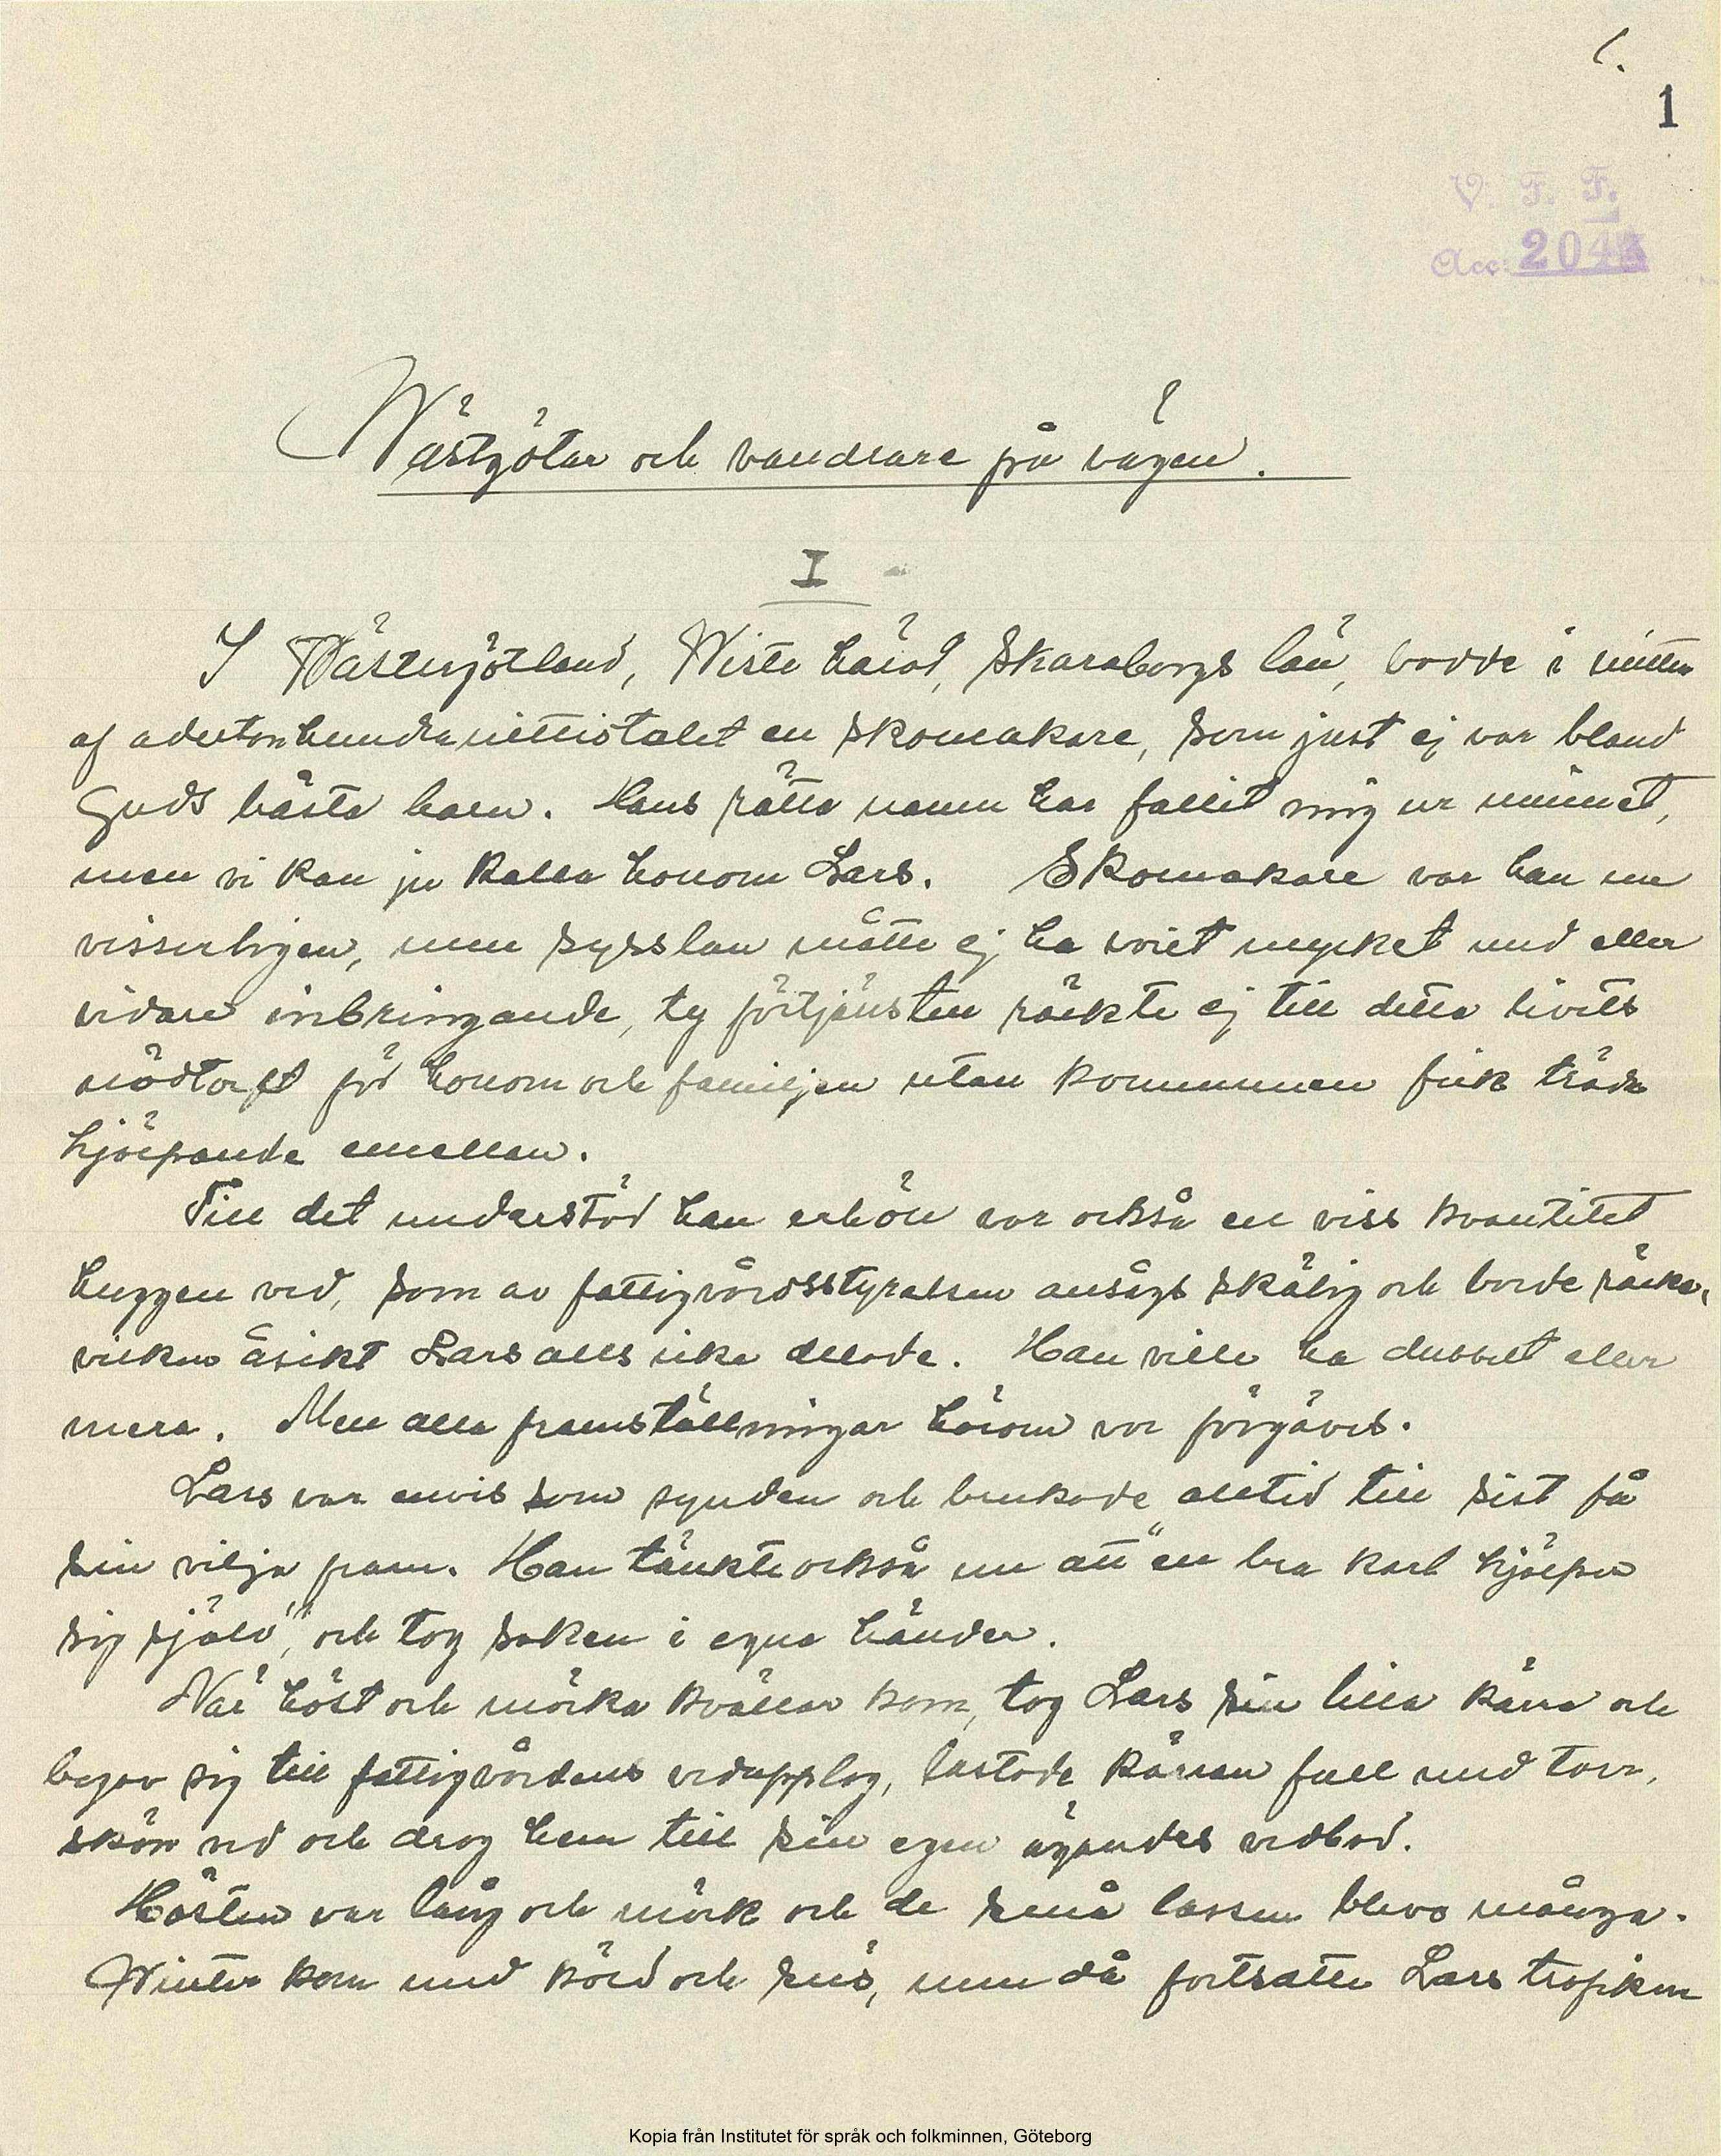 1.
1
V. F. F.
Acc: 204
Wästgötar och vandrare på vägen.
I
I Wästergötland, Wiste härad, Skaraborgs län, bodde i mitten
af adertonhundranittiotalet en skomakare, som just ej var bland
Guds bästa barn. Hans rätta namn har fallit mig ur minnet,
men vi kan ju kalla honom Lars. Skomakare var han nu
visserligen, men sysslan måtte ej ha varit mycket med eller
vidare inbringande, ty förtjänsten räckte ej till detta livets
nödtorft för honom och familjen utan kommunen fick träda
hjälpande emellan.
Till det understöd han erhöll var också en viss kvantitet
huggen ved, som av fattigvårdsstyrelsen ansågs skälig och borde räcka,
vilken åsikt Lars alls icke delade. Han ville ha dubbelt eller
mera. Men alla framställningar härom var förgäves.
Lars var envis som synden och brukade alltid till sist få
sin vilja fram. Han tänkte också nu att "en bra karl hjälper
sig själv", och tog saken i egna händer.
När höst och mörka kvällar kom, tog Lars sin lilla kärra och
begav sig till fattigvårdens vedupplag, lastade kärran full med torr,
skön ved och drog hem till sin egen ägandes vedbod.
Hösten var lång och mörk och de små lassen blevo många.
Winter kom med köld och snö, men då fortsatte Lars trafiken
Kopia från Institutet för språk och folkminnen, Göteborg